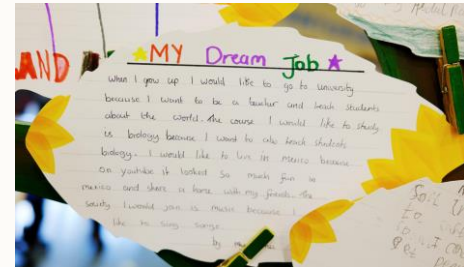 AND
MY Dream Job
When I grow up I would like to go to university
because I want to be a teacher and teach students
about the world. The course I would like to study
is biology because I want to also teach students
biology. I would like to live in mexico because
on youtube it looked so much fun in
mexico and share a home with my friends. The
society I would join is music because I
like to sing songs.
by
Soil
to
to